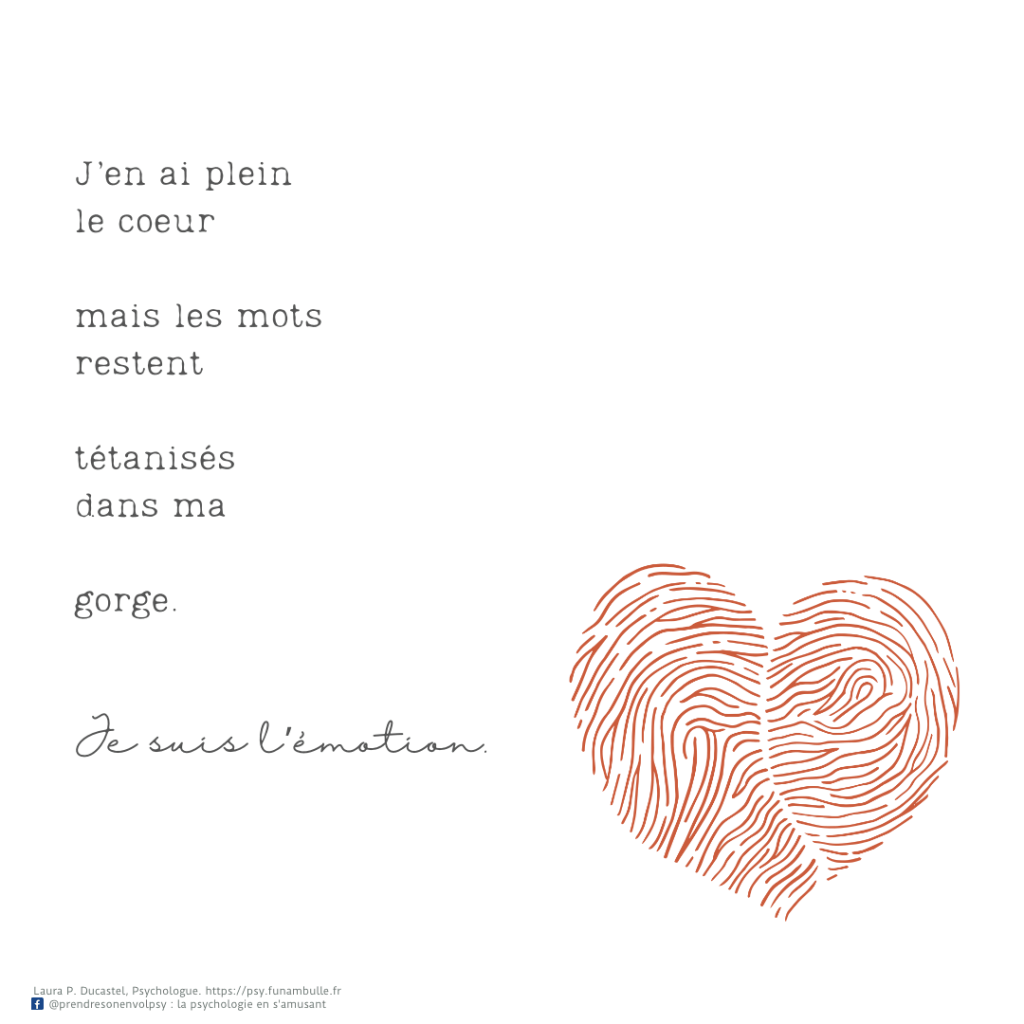 J'en ai plein
le coeur
mais les mots
restent
tétanisés
dans ma
gorge.
Je suis l'émotion.
Laura P. Ducastel, Psychologue. https://psy.funambulle.fr
@prendresonenvolpsy : la psychologie en s'amusant